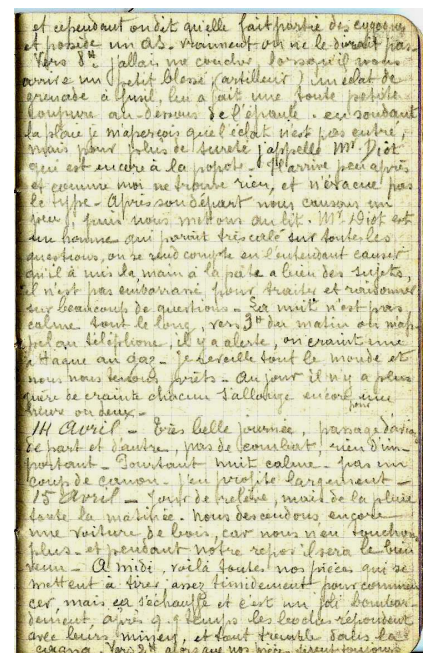 et cependant on dit qu'elle fait partie des cigognes
et possède un as. vraiment on ne le dirait pas.
Vers 8H. j'allais me coucher lorsqu'il nous
arrive un petit blessé (artilleur) un éclat de
grenade à fusil, lui a fait une toute petite
coupure au-dessous de l'épaule. en sondant
la plaie je m'aperçois que l'éclat n'est pas entré,
mais pour plus de sureté j'appelle Mr. Diot
qui est encore à la popote. Il arrive peu après
et comme moi ne trouve rien, et n'évacue pas
le type - Après son départ nous causons un
peu, puis nous mettons au lit. Mr. Diot est
un homme qui parait très calé sur toutes les
questions, on se rend compte en l'entendant causer
qu'il à mis la main à la pâte a bien des sujets,
il n'est pas embarrassé pour traiter et raisonner
sur beaucoup de questions - La nuit n'est pas
calme tout le long, vers 3H du matin on m'ap-
pel au téléphone, il y a alerte, on craint une
attaque au gaz. Je reveille tout le monde et
nous nous tenons prêts - Au jour il n'y a plus
guère de crainte chacun s'allonge encore pour une
heure ou deux -
14 Avril - Très belle journée, passage d'avions
de part et d'autre, pas de combat, rien d'im-
portant - Pourtant nuit calme - pas un
coup de canon - j'en profite largement -
15 Avril - Jour de relève, mais de la pluie
toute la matinée. Nous descendons encore
une voiture de bois, car nous n'en touchons
plus - et pendant notre repos il sera le bien
venu - A midi, voilà toutes nos pièces qui se
mettent à tirer assez timidement pour commen
cer, mais ça s'échauffe et c'est un joli bombar-
dement, après q.q temps les boches répondent
avec leurs minen, et tout tremble dans la
cagna. Vers 2H alors que nos pièces tirent toujours